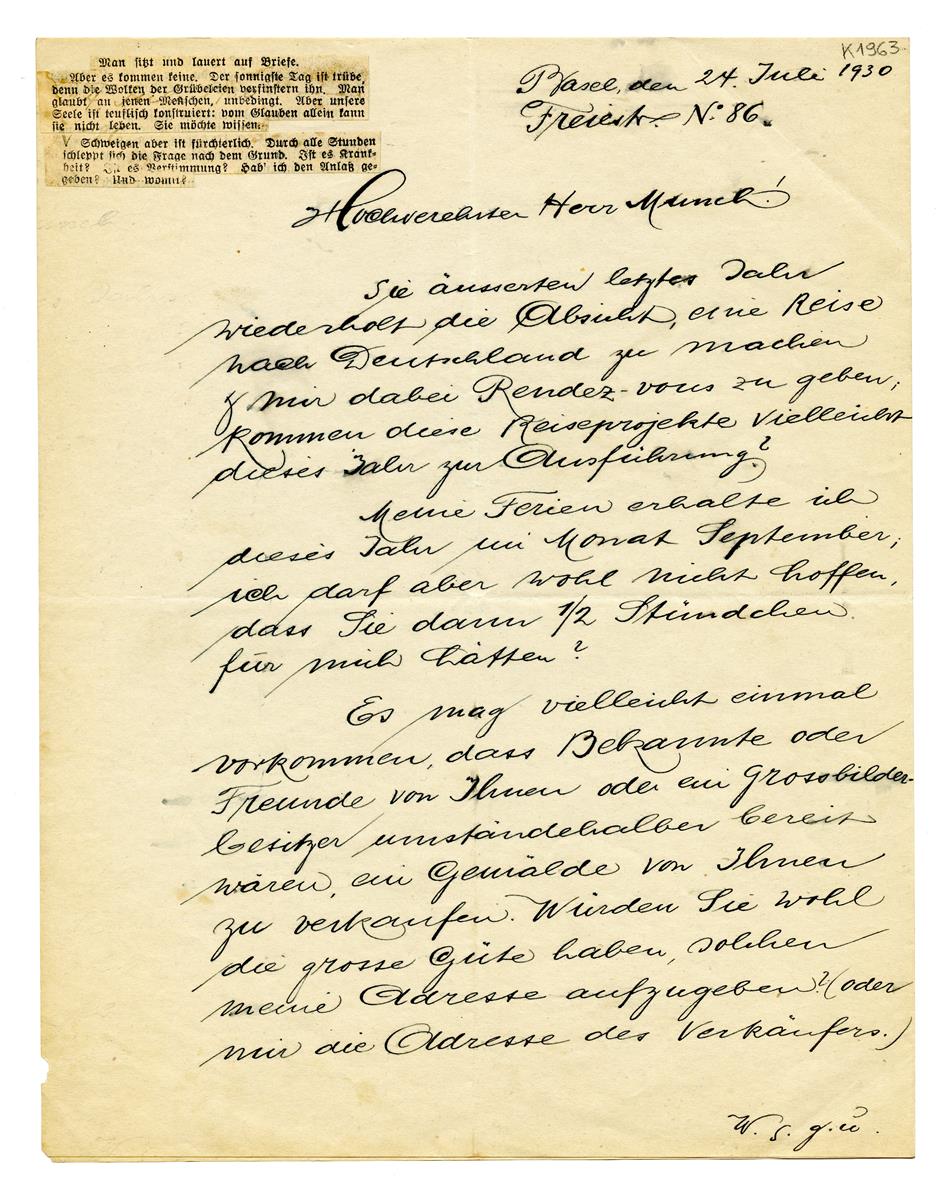 K1963
Man sitzt und lauert auf Briefe.
Aber es kommen keine. Der sonnigste Tag ist trübe,
denn die Wolken der Grübeleien verfinstern ihn. Man
glaubt an jenen Menschen, unbedingt. Aber unsere
Seele ist teuflisch konstruiert: vom Glauben allein kann
sie nicht leben. Sie möchte wissen.
Schweigen aber ist fürchterlich. Durch alle Stunden
schleppt sich die Frage nach dem Grund. Ist es Krank-
heit? Ist es Verstimmung? Hab' ich den Anlaß ge-
geben? Und womit?
Basel, den 24. Juli 1930
Freiestr. No. 86.
Hochverehrter Herr Munch!
Sie äusserten letztes Jahr
wiederholt die Absicht, eine Reise
nach Deutschland zu machen
& mir dabei Rendez-vous zu geben;
kommen diese Reiseprojekte vielleicht
dieses Jahr zur Ausführung?
Meine Ferien erhalte ich
dieses Jahr im Monat September;
ich darf aber wohl nicht hoffen,
dass Sie dann 1/2 Stündchen
für mich hätten?
Es mag vielleicht einmal
vorkommen, dass Bekannte oder
Freunde von Ihnen oder ein Grossbilder-
besitzer umständehalber bereit
wären, ein Gemälde von Ihnen
zu verkaufen. Würden Sie wohl
die grosse Güte haben, solchen
meine Adresse aufzugeben? (oder
mir die Adresse des Verkäufers.)
W. s. g. u.